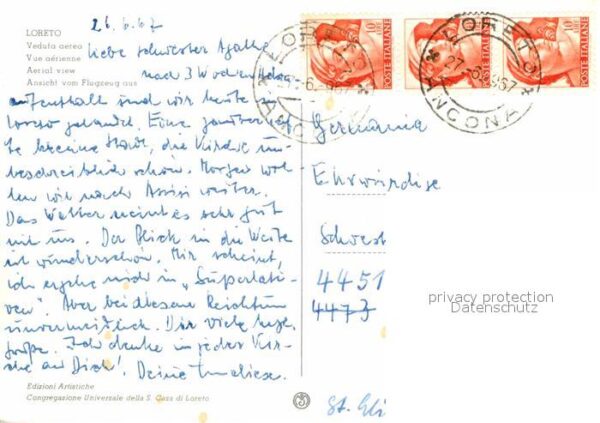 26.6.67
LORETO
Veduta aerea
Vue aérienne
Aerial view
Ansicht vom Flugzeug aus
Liebe Schwester Agathe
nach 3 Wochen
aufenthalt sind wir heute in
Loreto gelandet. Eine
te kleine Stadt, die Kirche un-
beschreiblich schön. Morgen wol-
len wir nach Assisi weiter.
Das Wetter meint es sehr gut
mit uns. Der Blick in die Weite
ist wunderschön. Mir scheint,
ich ergehe mich in „Superlati-
ven". Aber bei diesem Reichtum
unvermeidlich. Dir viele liebe
Grüße. Ich denke in jeder Kir-
che an Dich! Deine
Edizioni Artistiche
Congregazione Universale della S. Casa di Loreto
POSTE ITALIANE
POSTE ITALIANE
POSTE ITALIANE
LORETO
ANCONA
LORETO
27-6-1967
ANCONA
Germania
Ehrwürdige
Schwest
4451
4473
privacy protection
Datenschutz
St. Eli